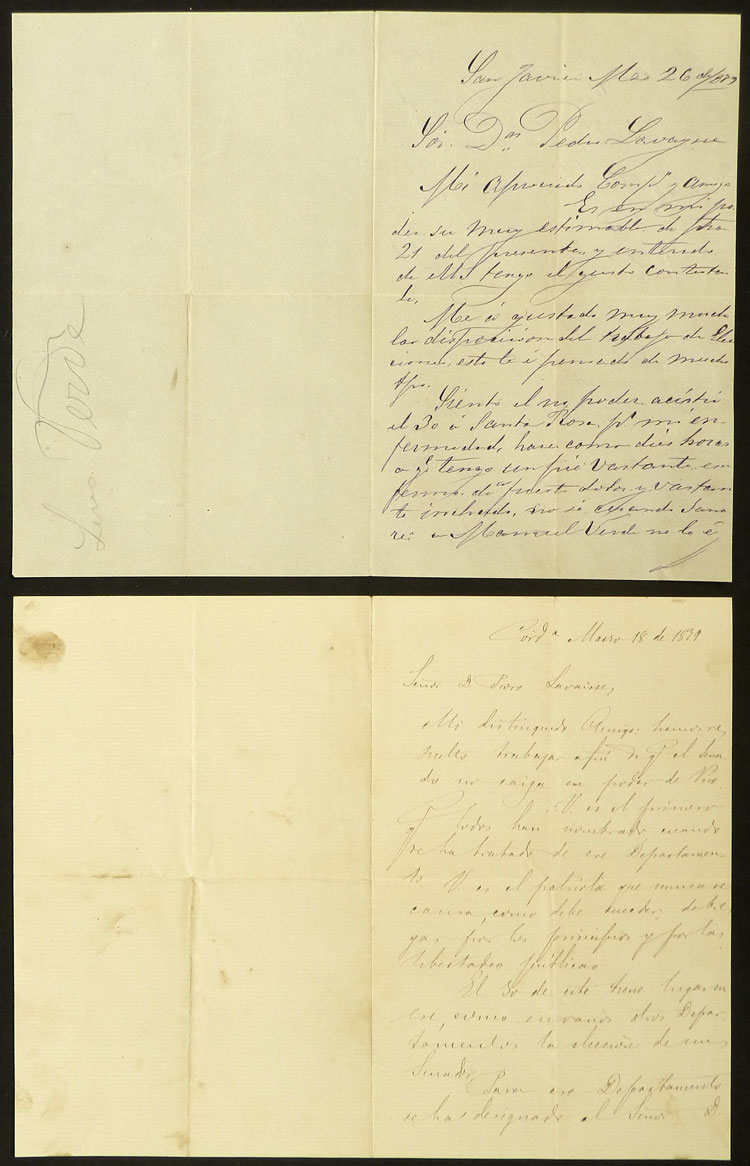 San Javier Mzo 26 de/1879
Sor. Dn Pedro Lavayse
Mi Apreciado Comp.e y amigo
Es en mi po
der su muy estimable de fha
21 del presente, y enterado
de ella tengo el gusto contestar
le,
Me á gustado muy mucho
la disposicion del trabajo de Elec
ciones, esto lo é pensado de mucho
tpo.
Siento el no poder acistir
el 30 á Santa Rosa pr mi en-
fermedad, hace como dies horas
a qe tengo un pié vastante en
fermo, puesto dolor y vastan
te inchado, no sé cuando Sana
ré: a Manuel Verde no lo é
Luis Verde
Cord.a Marzo 18 de 1879
Señor D. Pedro Lavaisse,
Mi distinguido Amigo: hemos re
suelto trabajar a fin de q.e el Sena
do no caiga en poder de
V. es el primero
q.e todos han nombrado cuando
se ha tratado de ese Departamen
to. V. es el patriota que nunca se
cansa, como debe suceder, de bre
gar por los principios y por las
libertades públicas.
El 30 de este tiene lugar en
ese, como en varios otros Depar
tamentos la eleccion de un
Senador.
Para ese Departamento
se ha designado al Señor D.